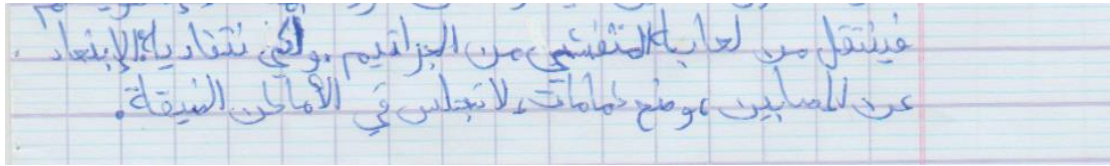 فينتقل من لعاب المتفشي من الجراثيم. ولكي نتفادى الإبتعاد
عن المصابين، وضع كمامات، لا تجلس في الأماكن الضيقة.